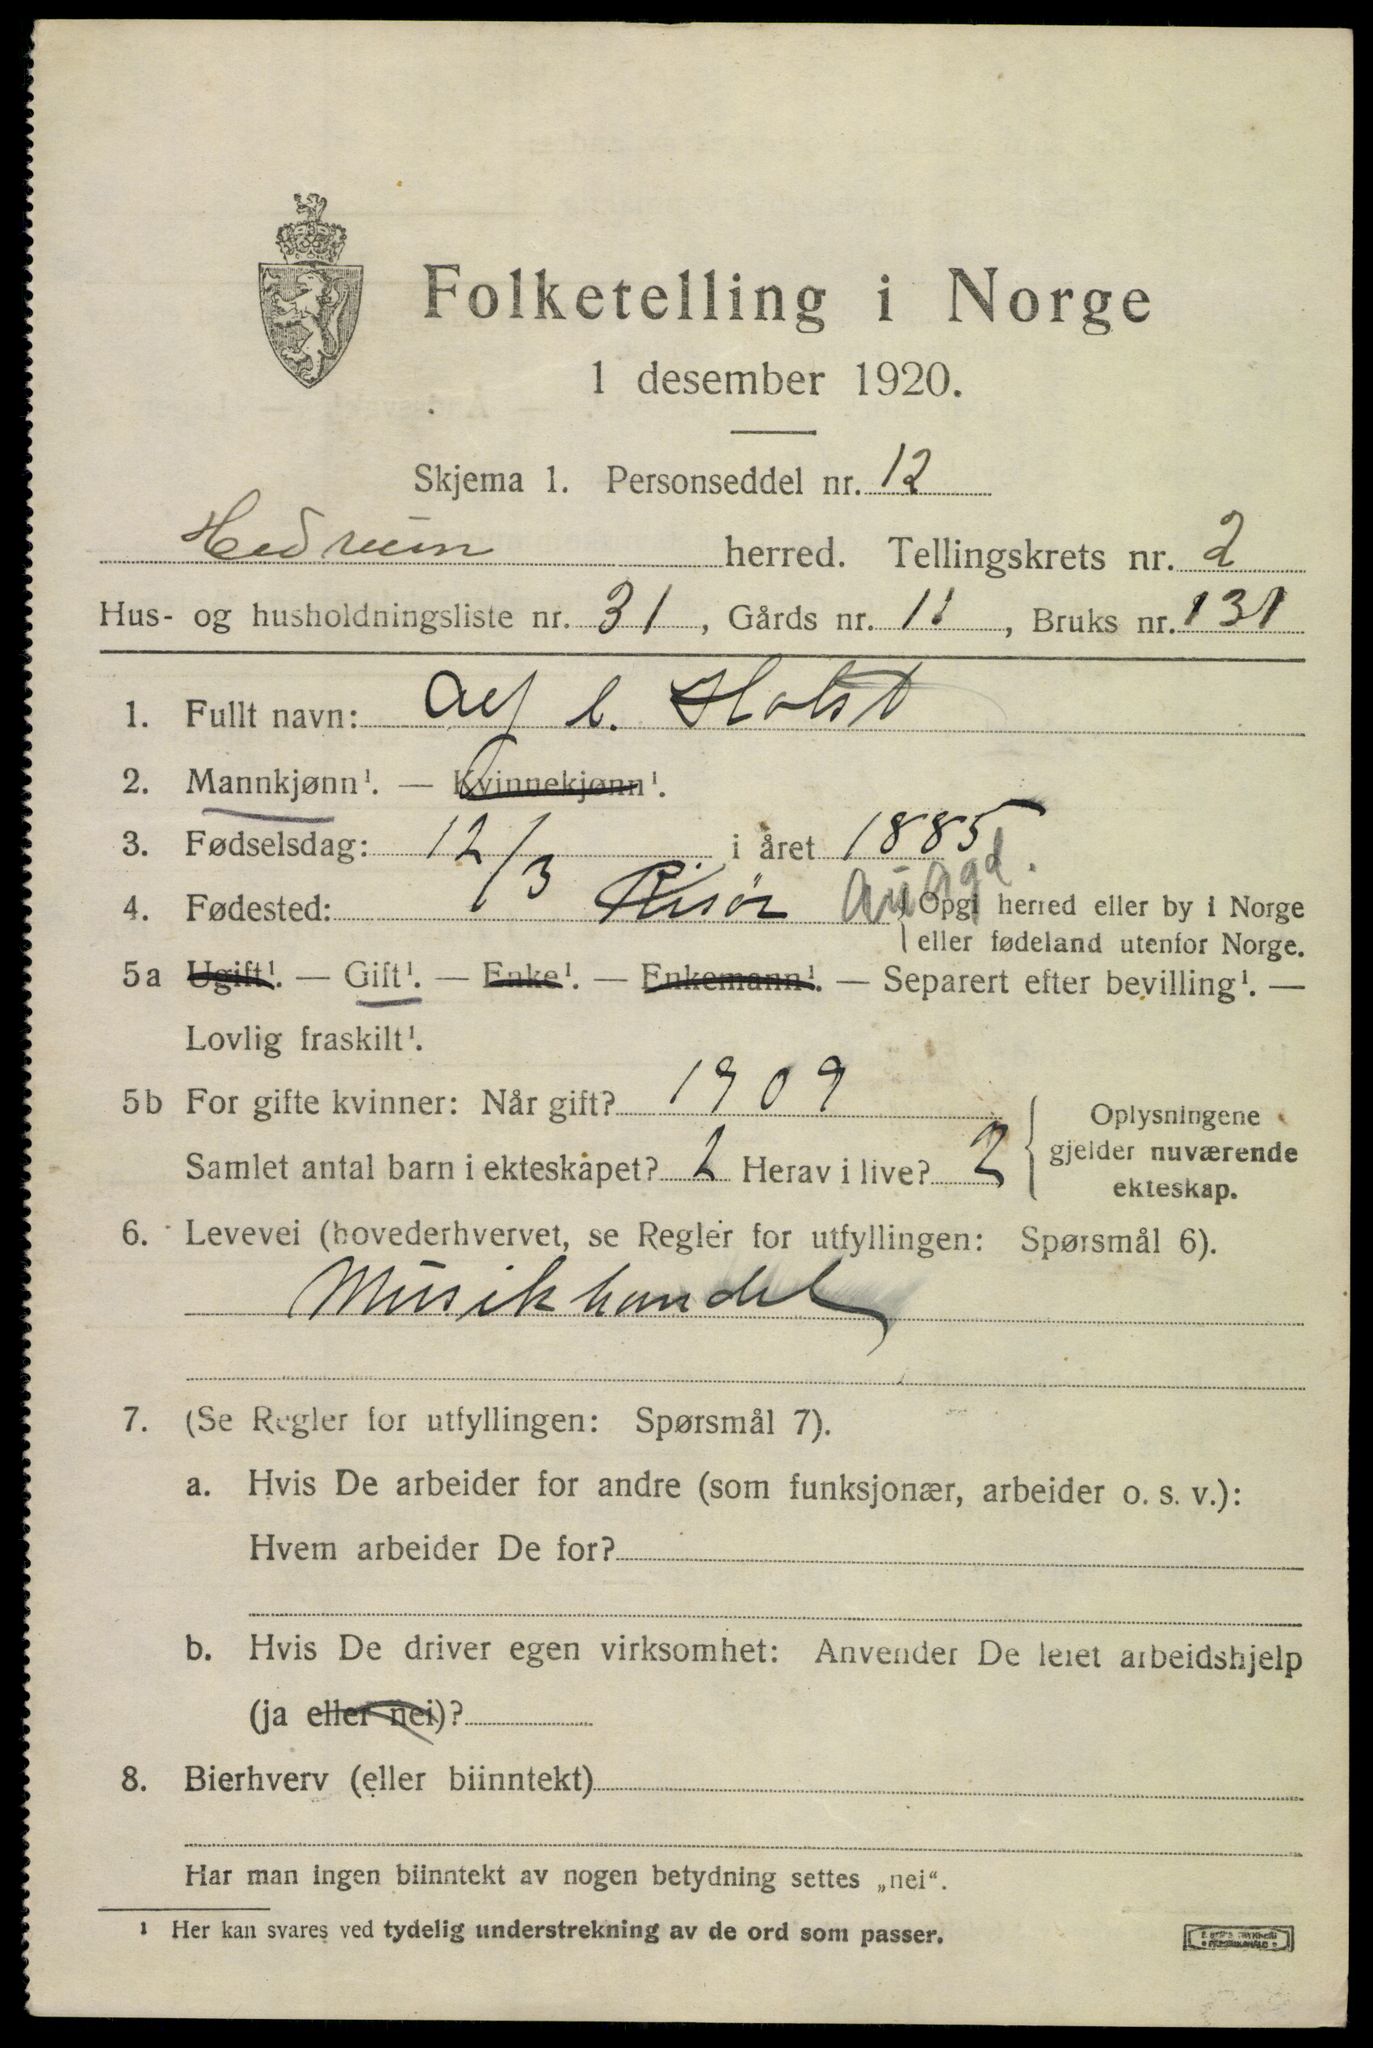 Folketelling i Norge
1 desember 1920.
Skjema 1. Personseddel nr. 12
Hedrum herred. Tellingskrets nr. 2
Hus- og husholdningsliste nr. 31, Gårds nr. 11, Bruks nr. 131
1. Fullt navn: Alf C. Holst
2. Mannkjønn¹. — Kvinnekjønn¹.
3. Fødselsdag: 12/3 i året 1885
4. Fødested: Risør Au Agd. Opgi herred eller by i Norge
eller fødeland utenfor Norge.
5a Ugift¹. — Gift¹. — Enke¹. — Enkemann¹. — Separert efter bevilling¹. —
Lovlig fraskilt¹.
5b For gifte kvinner: Når gift? 1909
Samlet antal barn i ekteskapet? 2 Herav i live? 2
Oplysningene
gjelder nuværende
ekteskap.
6. Levevei (hovederhvervet, se Regler for utfyllingen: Spørsmål 6).
Musikhandel
7. (Se Regler for utfyllingen: Spørsmål 7).
a. Hvis De arbeider for andre (som funksjonær, arbeider o. s. v.):
Hvem arbeider De for?
b. Hvis De driver egen virksomhet: Anvender De leiet arbeidshjelp
(ja eller nei)?
8. Bierhverv (eller biinntekt)
Har man ingen biinntekt av nogen betydning settes „nei“.
¹ Her kan svares ved tydelig understrekning av de ord som passer.